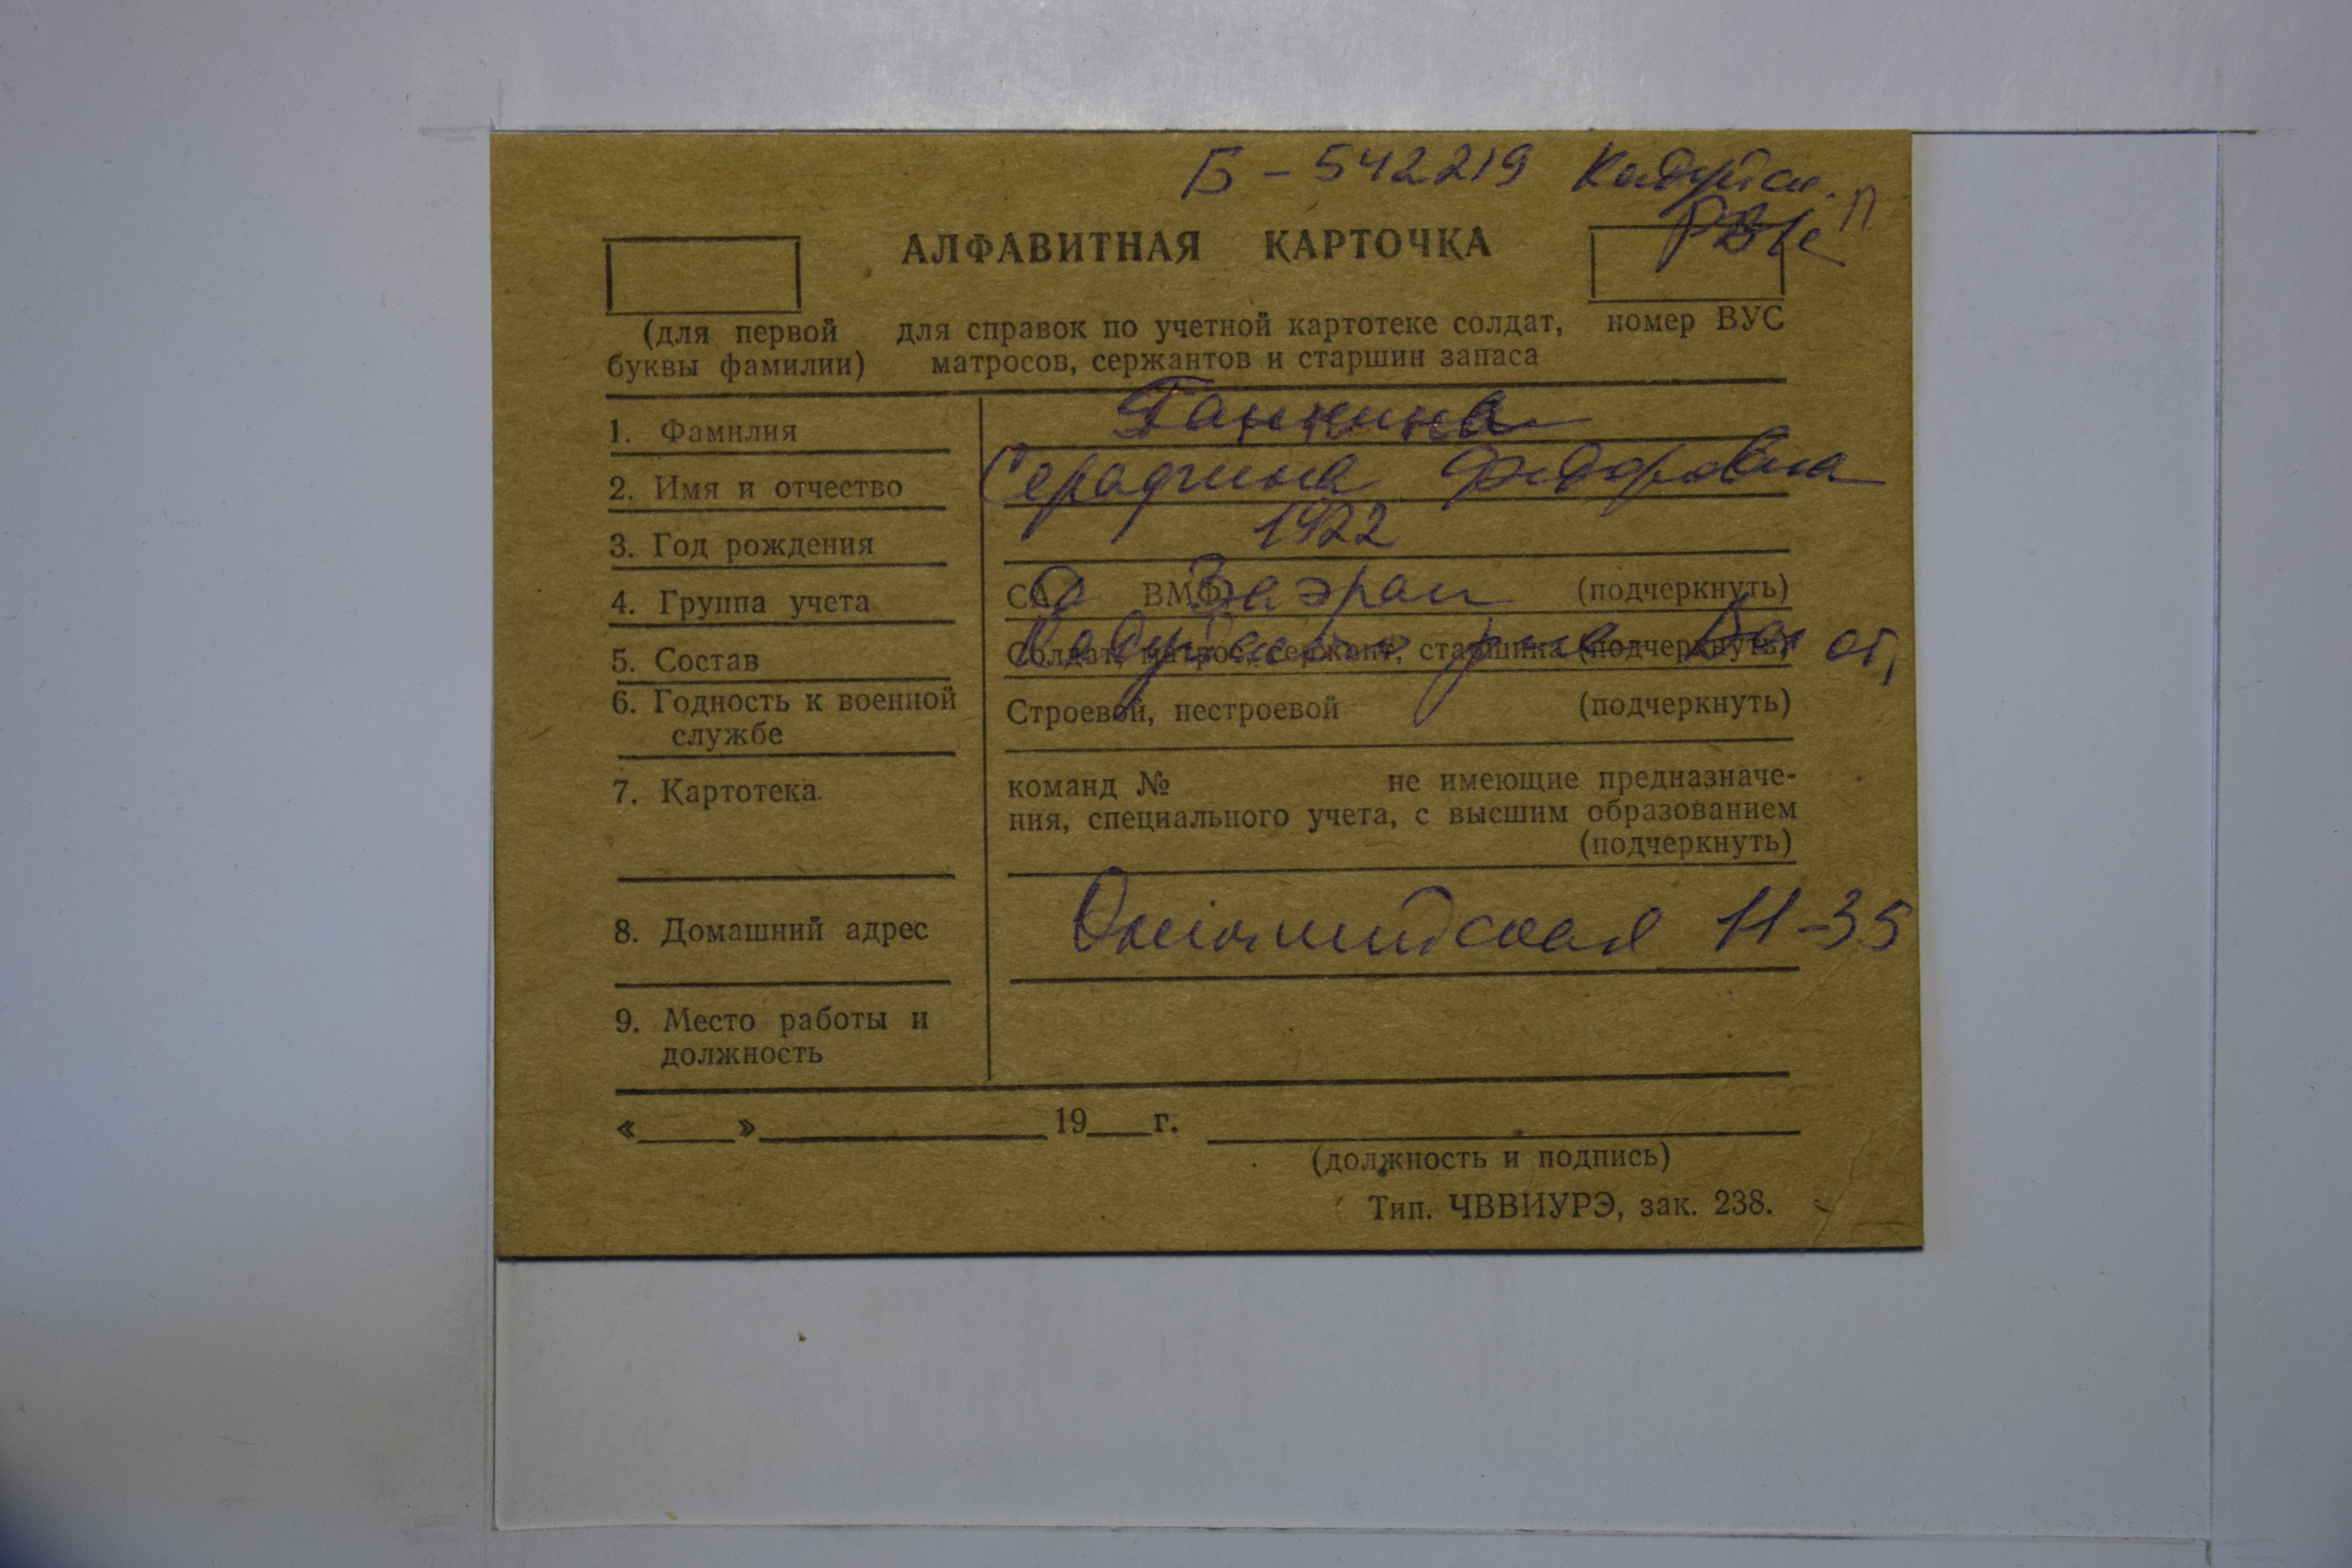 Б - 542219 Кадуйск. П
РВК
АЛФАВИТНАЯ КАРТОЧКА
(для первой буквы фамилии)
для справок по учетной картотеке солдат,
матросов, сержантов и старшин запаса
номер ВУС
1. Фамилия Ганнина
2. Имя и отчество Серафима Федоровна
3. Год рождения 1922
4. Группа учета СА ВМФ (подчеркнуть)
5. Состав Солдат, матрос, сержант, старшина (подчеркнуть)
6. Годность к военной службе Строевой, нестроевой (подчеркнуть)
7. Картотека команд № не имеющие предназначе-
ния, специального учета, с высшим образованием
(подчеркнуть)
8. Домашний адрес 11-35
9. Место работы и должность
« » 19 г.
(должность и подпись)
Тип. ЧВВИУРЭ, зак. 238.